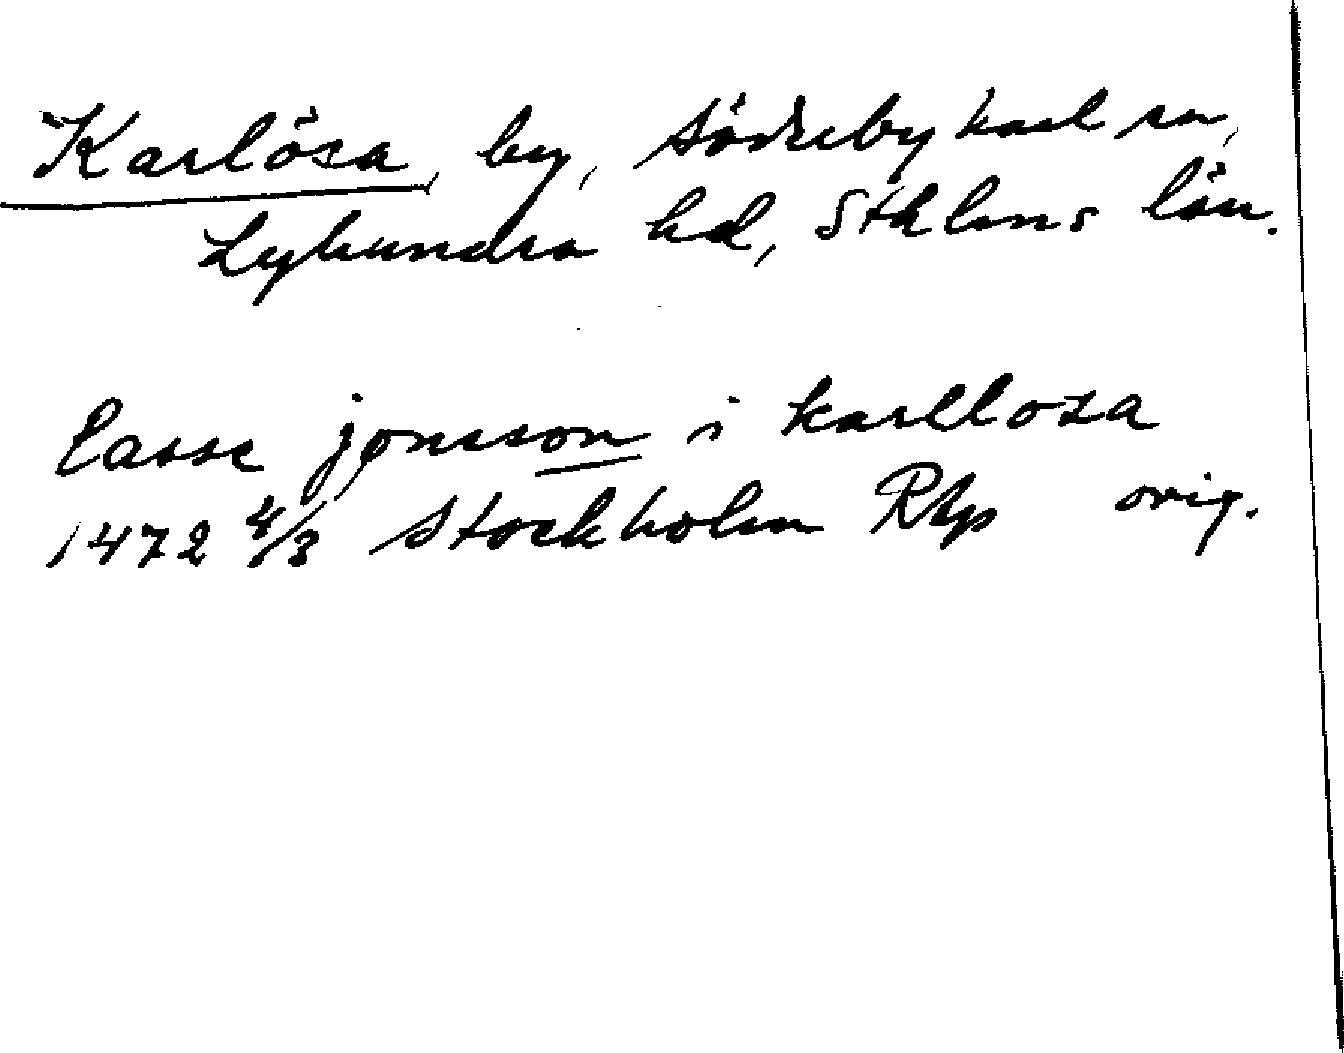 Karlösa, by, Söderbykarl sn,
Lyhundra hd, Sthlms län.
lasse jonsson i karllosa
1472 4/3 Stockholm RAp orig.